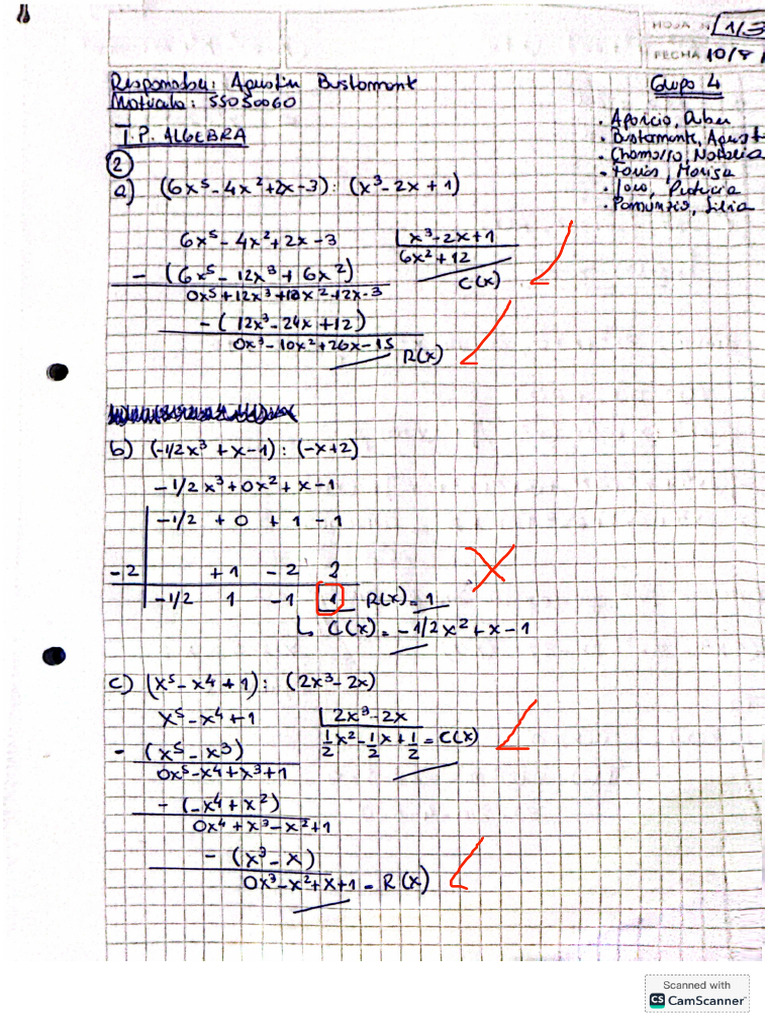 HOJA Nº 1/3
FECHA 10/8/
Responsable: Agustin Bustamante
Matricula: 55050060
Grupo 4
• Aparicio, Ruben
• Bustamante, Agust
• Chamorro, Natalia
• Farias, Marisa
• Toro, Patricia
• Pamunzio, Silvia
T.P. ALGEBRA
2
a) (6x⁵-4x²+2x-3):(x³-2x+1)
6x⁵-4x²+2x-3 x³-2x+1
-(6x⁵-12x³+6x²) 6x²+12
C(x)
0x⁵+12x³+10x²-12x-3
-(12x³-24x+12)
0x³-10x²+26x-15 R(x)
b) (-1/2x³+x-1):(-x+2)
-1/2x³+0x²+x-1
-1/2 +0 +1 -1
-2 +1 -2 2
-1/2 1 -1 1 R(x)=1
C(x)=-1/2x²+x-1
c) (x⁵-x⁴+1):(2x³-2x)
x⁵-x⁴+1 2x³-2x
-(x⁵-x³) 1/2x²-1/2x+1/2=C(x)
0x⁵-x⁴+x³+1
-(-x⁴+x²)
0x⁴+x³-x²+1
-(x³-x)
0x³-x²+x+1=R(x)
Scanned with
CS CamScanner